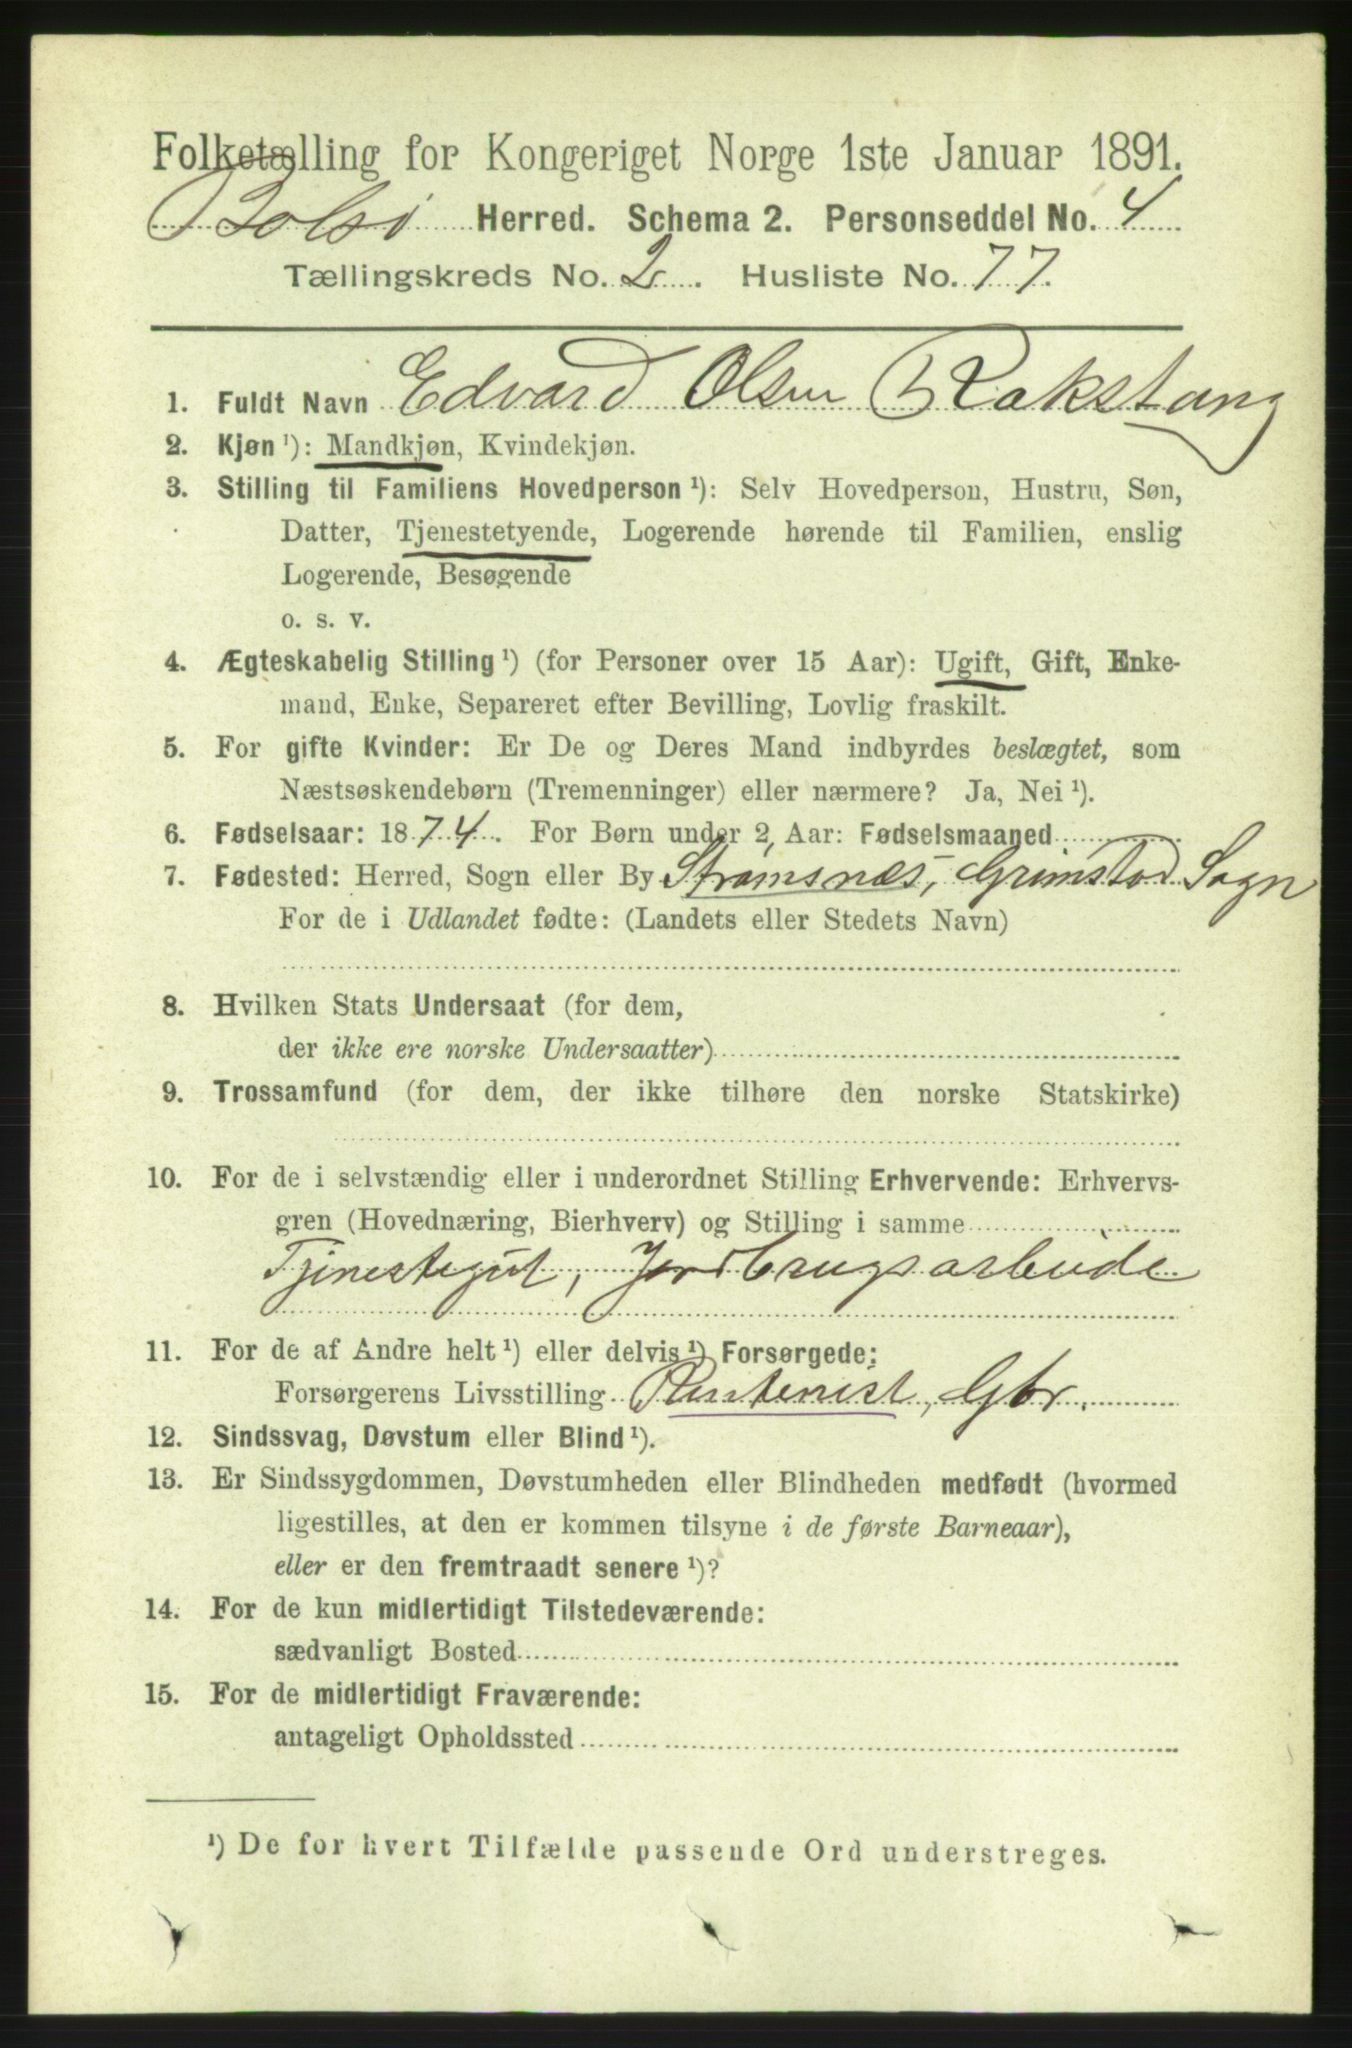 Folketælling for Kongeriget Norge 1ste Januar 1891.
Bolsø Herred. Schema 2. Personseddel No. 4
Tællingskreds No. 2. Husliste No. 77.
1. Fuldt Navn Edvard Olsen Rakstang
2. Kjøn ¹): Mandkjøn, Kvindekjøn.
3. Stilling til Familiens Hovedperson ¹): Selv Hovedperson, Hustru, Søn,
Datter, Tjenestetyende, Logerende hørende til Familien, enslig
Logerende, Besøgende
o. s. v.
4. Ægteskabelig Stilling ¹) (for Personer over 15 Aar): Ugift, Gift, Enke-
mand, Enke, Separeret efter Bevilling, Lovlig fraskilt.
5. For gifte Kvinder: Er De og Deres Mand indbyrdes beslægtet, som
Næstsøskendebørn (Tremenninger) eller nærmere? Ja, Nei ¹).
6. Fødselsaar: 1874. For Børn under 2 Aar: Fødselsmaaned
7. Fødested: Herred, Sogn eller By Strømsnæs, Grimstad Sogn
For de i Udlandet fødte: (Landets eller Stedets Navn)
8. Hvilken Stats Undersaat (for dem,
der ikke ere norske Undersaatter)
9. Trossamfund (for dem, der ikke tilhøre den norske Statskirke)
10. For de i selvstændig eller i underordnet Stilling Erhvervende: Erhvervs-
gren (Hovednæring, Bierhverv) og Stilling i samme
Tjenestegut, Jordbrugsarbeide
11. For de af Andre helt ¹) eller delvis ¹) Forsørgede:
Forsørgerens Livsstilling Rentenist, Gbr.
12. Sindssvag, Døvstum eller Blind ¹).
13. Er Sindssygdommen, Døvstumheden eller Blindheden medfødt (hvormed
ligestilles, at den er kommen tilsyne i de første Barneaar),
eller er den fremtraadt senere ¹)?
14. For de kun midlertidigt Tilstedeværende:
sædvanligt Bosted
15. For de midlertidigt Fraværende:
antageligt Opholdssted
¹) De for hvert Tilfælde passende Ord understreges.